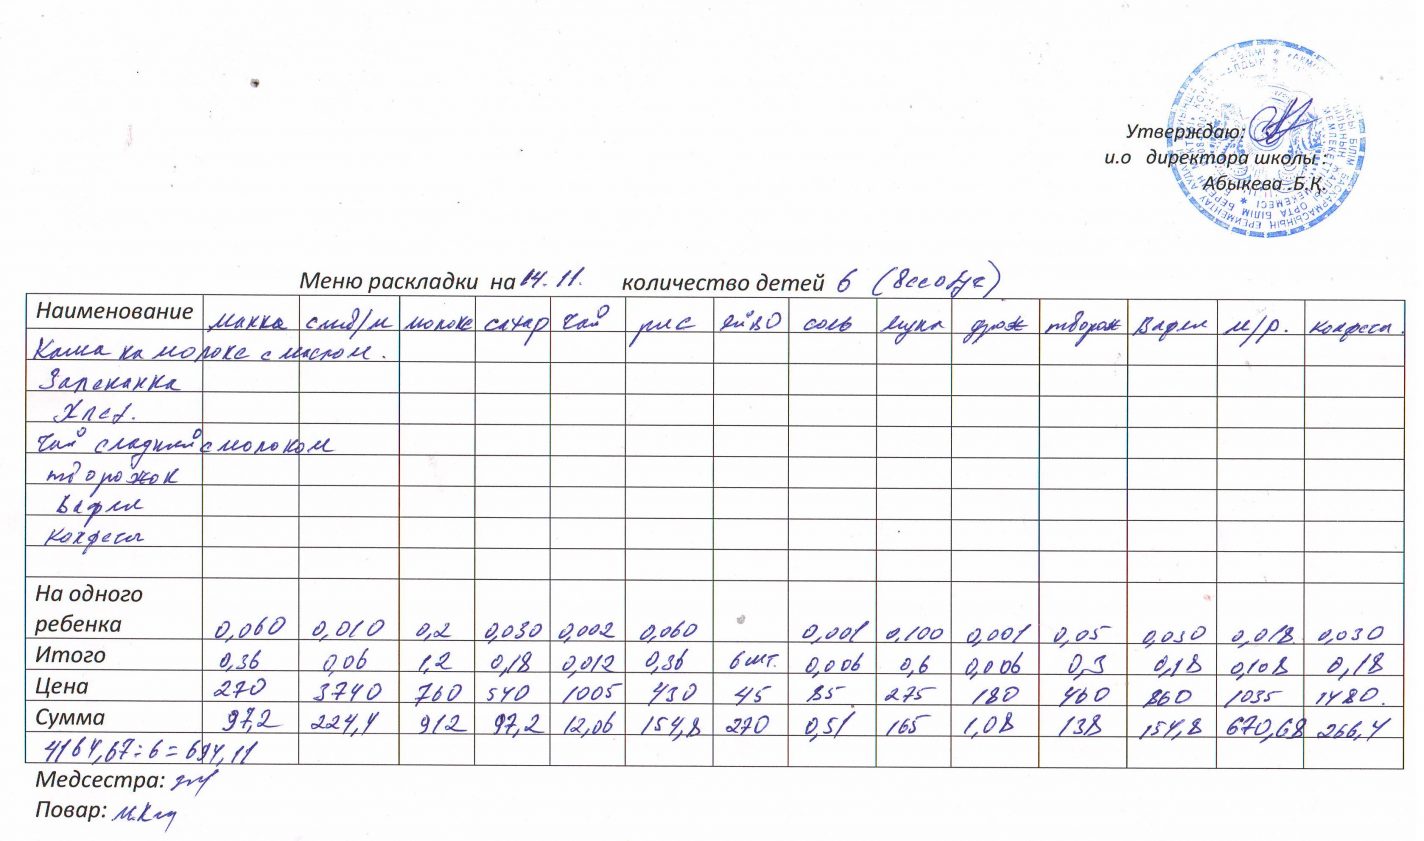 Утверждаю:
и.о директора школы :
Абыкева .Б.Қ.
Меню раскладки на 14.11. количество детей 6
Наименование манка слив/м молоко сахар чай рис яйцо соль мука дрож творож Вафли м/р. конфеты.
Каша на молоке с маслом.
Запеканка
Хлеб.
Чай сладкий с молоком
творожок
Вафли
конфеты
На одного
ребенка 0,060 0,010 0,2 0,030 0,002 0,060 0,001 0,100 0,001 0,05 0,030 0,018 0,030
Итого 0,36 0,06 1,2 0,18 0,012 0,36 6 шт. 0,006 0,6 0,006 0,3 0,18 0,108 0,18
Цена 270 3740 760 540 1005 430 45 85 275 180 460 860 1035 1480.
Сумма 97,2 224,4 912 97,2 12,06 154,8 270 0,51 165 1,08 138 154,8 670,68 266,4
4164,67÷6=694,11
Медсестра:
Повар: